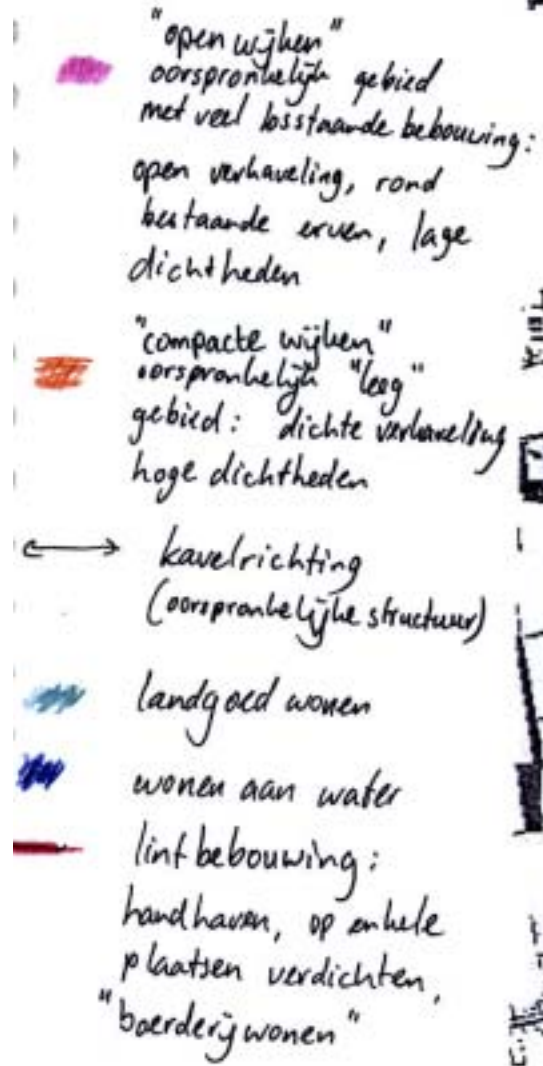 "open wijken"
oorspronkelijk gebied
met veel losstaande bebouwing:
open verkaveling, rond
bestaande erven, lage
dichtheden
"compacte wijken"
oorspronkelijk "leeg"
gebied: dichte verkaveling
hoge dichtheden
kavelrichting
(oorspronkelijke structuur)
landgoed wonen
wonen aan water
lintbebouwing:
handhaven, op enkele
plaatsen verdichten,
"boerderijwonen"